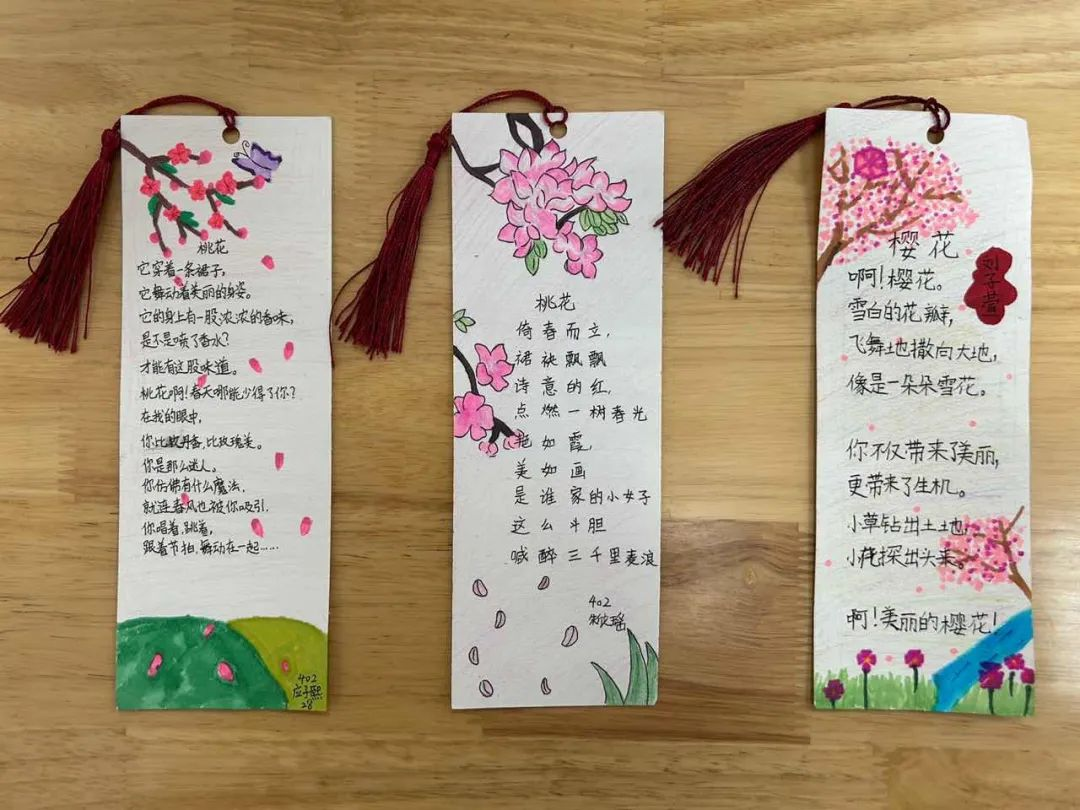 桃花
它穿着一条裙子，
它舞动着美丽的身姿。
它的身上有一股浓浓的香味，
是不是喷了香水？
才能有这股味道。
桃花啊！春天哪能少得了你？
在我的眼中，
你比牡丹香，比玫瑰美。
你是那么迷人。
你仿佛有什么魔法，
就连春风也被你吸引，
你唱着，跳着，
跟着节拍，舞动在一起……
402
应子熙
28
桃花
倚春而立，
裙袂飘飘
诗意的红，
点燃一树春光
艳如霞，
美如画
是谁家的小女子
这么斗胆
喊醉三千里麦浪
402
瑶
樱花
刘子萱
啊！樱花。
雪白的花瓣，
飞舞地撒向大地，
像是一朵朵雪花。
你不仅带来了美丽，
更带来了生机。
小草钻出土地，
小花探出头来。
啊！美丽的樱花！